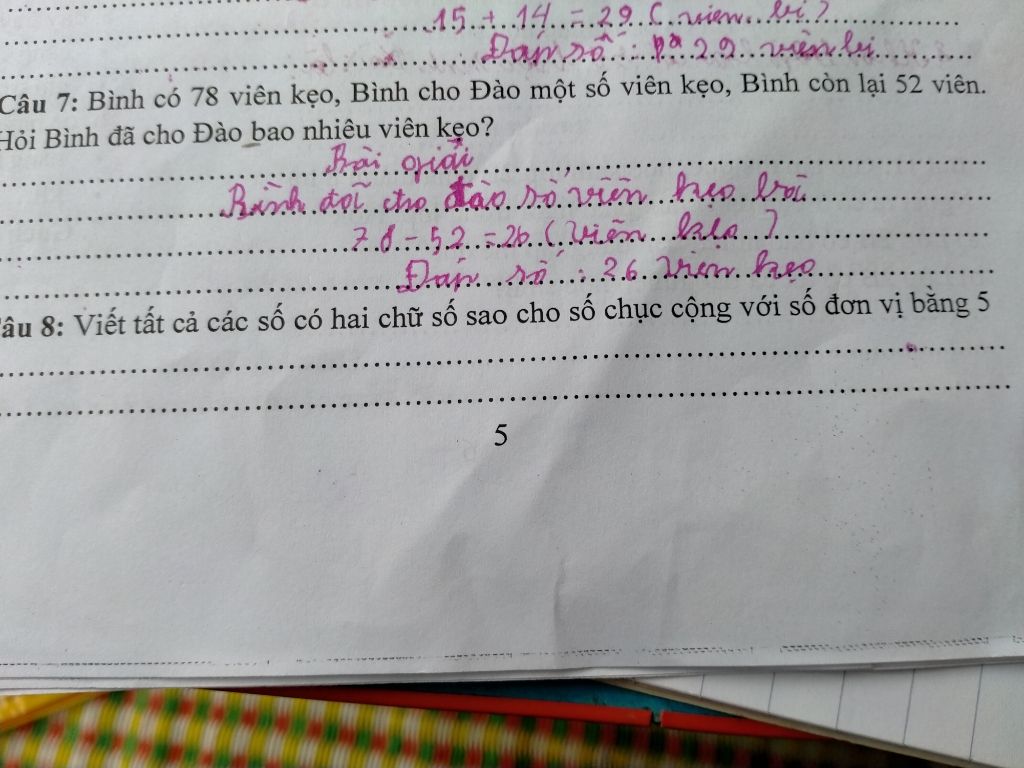 15 + 14 = 29 ( viên bi )
Đáp số : 29 viên bi
Câu 7: Bình có 78 viên kẹo, Bình cho Đào một số viên kẹo, Bình còn lại 52 viên.
Hỏi Bình đã cho Đào bao nhiêu viên kẹo?
Bài giải
Bình đã cho Đào số viên kẹo
78 - 52 = 26 ( viên kẹo )
Đáp số : 26 viên kẹo
âu 8: Viết tất cả các số có hai chữ số sao cho số chục cộng với số đơn vị bằng 5
5